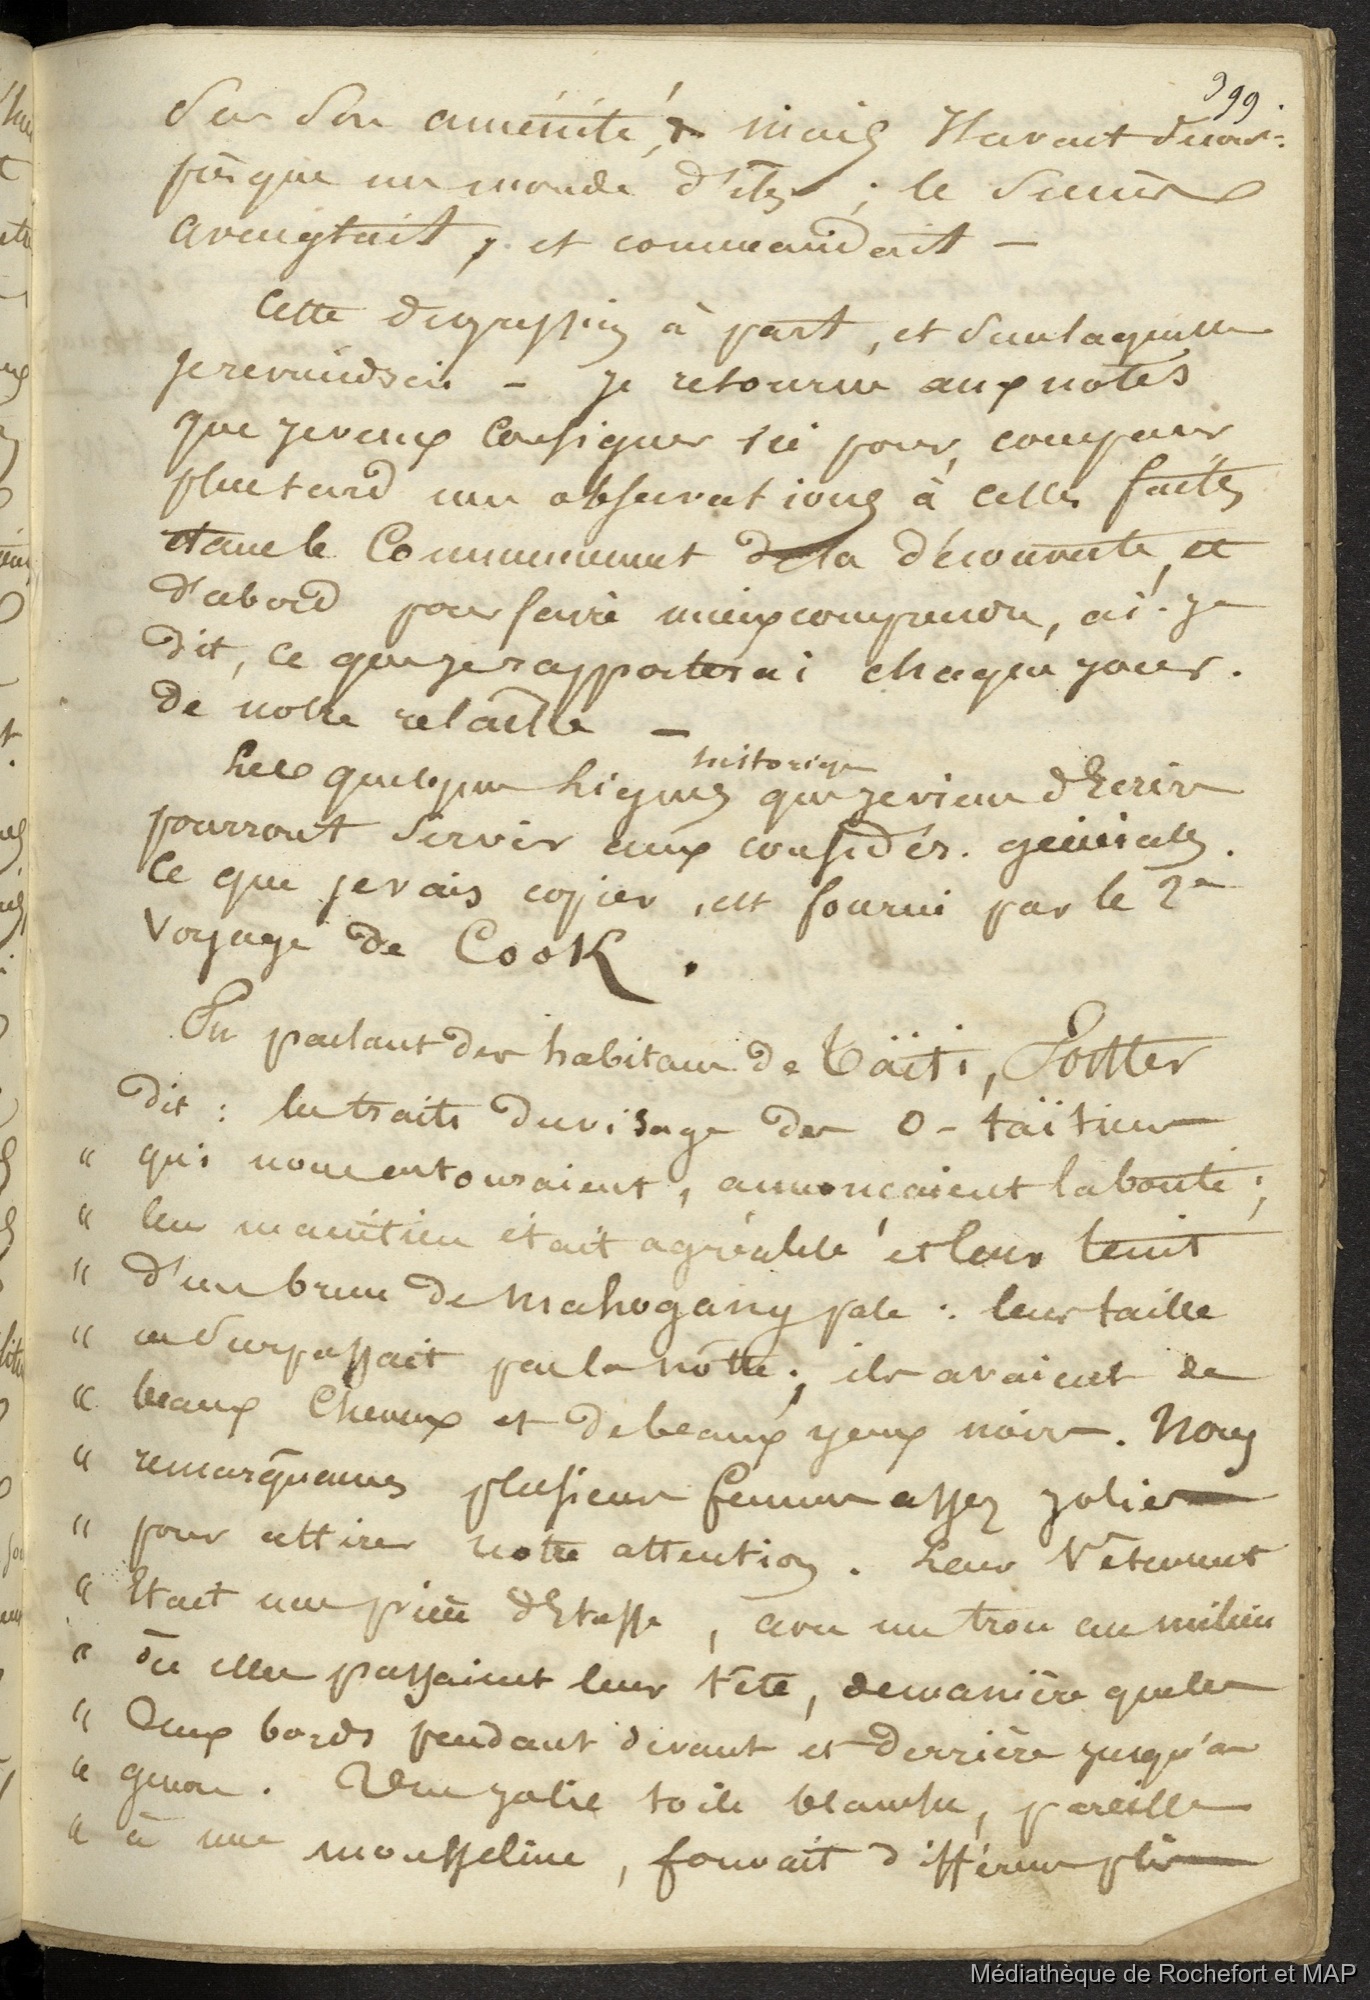 399.
Sur son aménité, & mais Il avait décou=
jusque un monde d'iles ; le succès
aveuglait, et commandait —
Cette digression à part, et dans laquelle
je reviendrai — je retourne aux notes
que je veux consigner ici pour, comparer
plus tard nos observations à celles faites
au Commencement de la découverte, et
d'abord pour faire mieux comprendre, ai-je
dit, ce que je rapporterai chaque jour.
de notre relâche —
historiques
Les quelques lignes que je viens d'Ecrire
pourront servir aux considér. générales.
Ce que je vais copier, est fourni par le 2e
Voyage de Cook.
En parlant des habitans de Taïti, Forster
dit : les traits du visage des O-taïtiens
" qui nous entouraient, annonçaient la bonté ;
" leur maintien était agréable et leur teint
" d'un brun de mahogany pale : leur taille
" ne surpassait pas la nôtre ; ils avaient de
" beaux Cheveux et de beaux yeux noirs. Nous
" remarquames plusieurs femmes assez jolies
" pour attirer notre attention. Leur Vêtement
" Etait une pièce d'Etoffe, avec un trou au milieu
" où elles passaient leur tête, de manière que les
" Deux bords pendant devant et derrière jusqu'au
" genou. Une jolie toile blanche, pareille
" à une mousseline, formait différens plis
Médiathèque de Rochefort et MAP